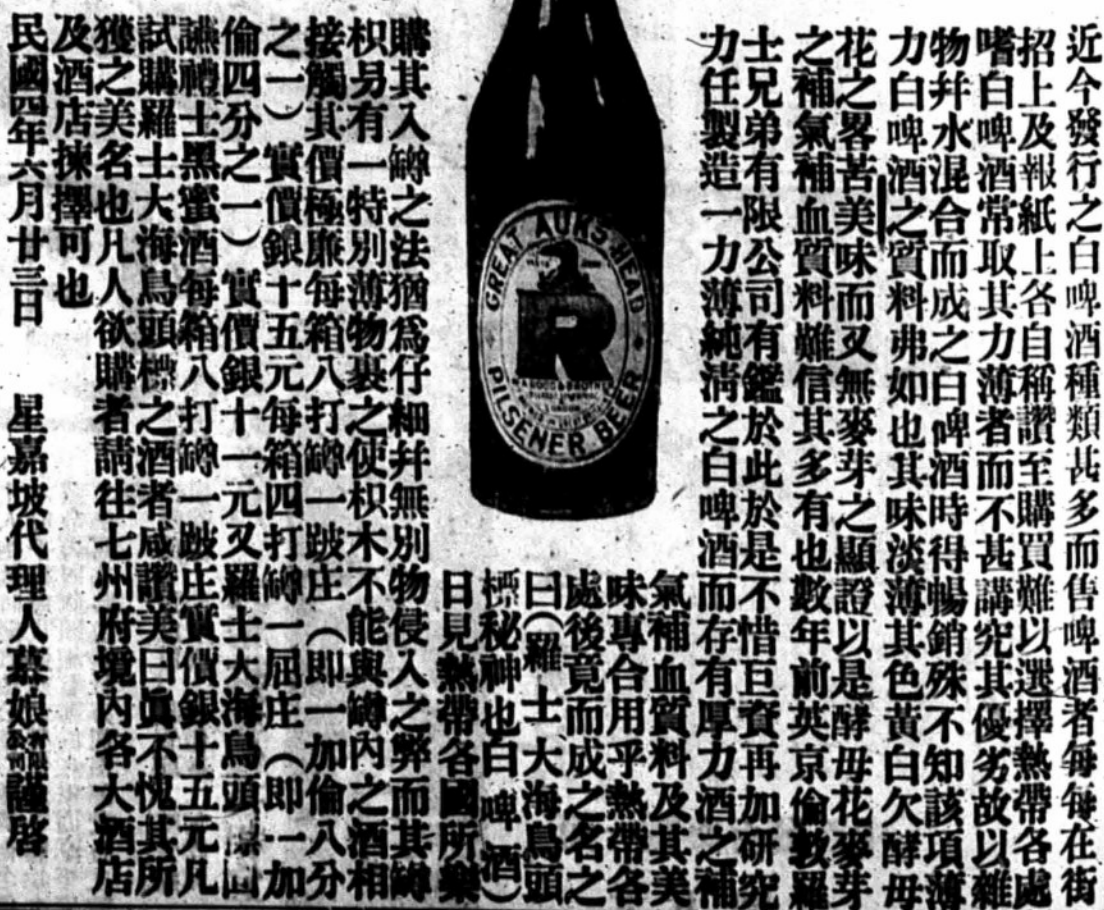 近今發行之白啤酒種類甚多而售啤酒者每每在街
招上及報紙上各自稱讚至購買難以選擇熱帶各處
嗜白啤酒常取其力薄者而不甚講究其優劣故以雜
物并水混合而成之白啤酒時得暢銷殊不知該項薄
力白啤酒之質料弗如也其味淡薄其色黃白欠酵母
花之畧苦美味而又無麥芽之顯證以是酵母花麥芽
之補氣補血質料難信其多有也數年前英京倫敦羅
士兄弟有限公司有鑑於此於是不惜巨資再加研究
力任製造一力薄純淸之白啤酒而存有厚力酒之補
氣補血質料及其美
味專合用乎熱帶各
處後竟而成之名之
曰(羅士大海鳥頭
標秘神也白啤酒)
日見熱帶各國所樂
GREAT AUKS HEAD
R
PILSENER BEER
購其入罇之法猶爲仔細幷無別物侵入之弊而其罇
枳另有一特別薄物裹之使枳木不能與罇內之酒相
接觸其價極廉每箱八打罇一跛庄(即一加倫八分
之一)實價銀十五元每箱四打罇一屈庄(即一加
倫四分之一)實價銀十一元又羅士大海鳥頭標圓
讌禮士黑蜜酒每箱八打罇一跛庄實價銀十五元凡
試購羅士大海鳥頭標之酒者咸讚美曰眞不愧其所
獲之美名也凡人欲購者請往七州府境內各大酒店
及酒店揀擇可也
民國四年六月廿三日 星嘉坡代理人慕娘有限公司謹啓